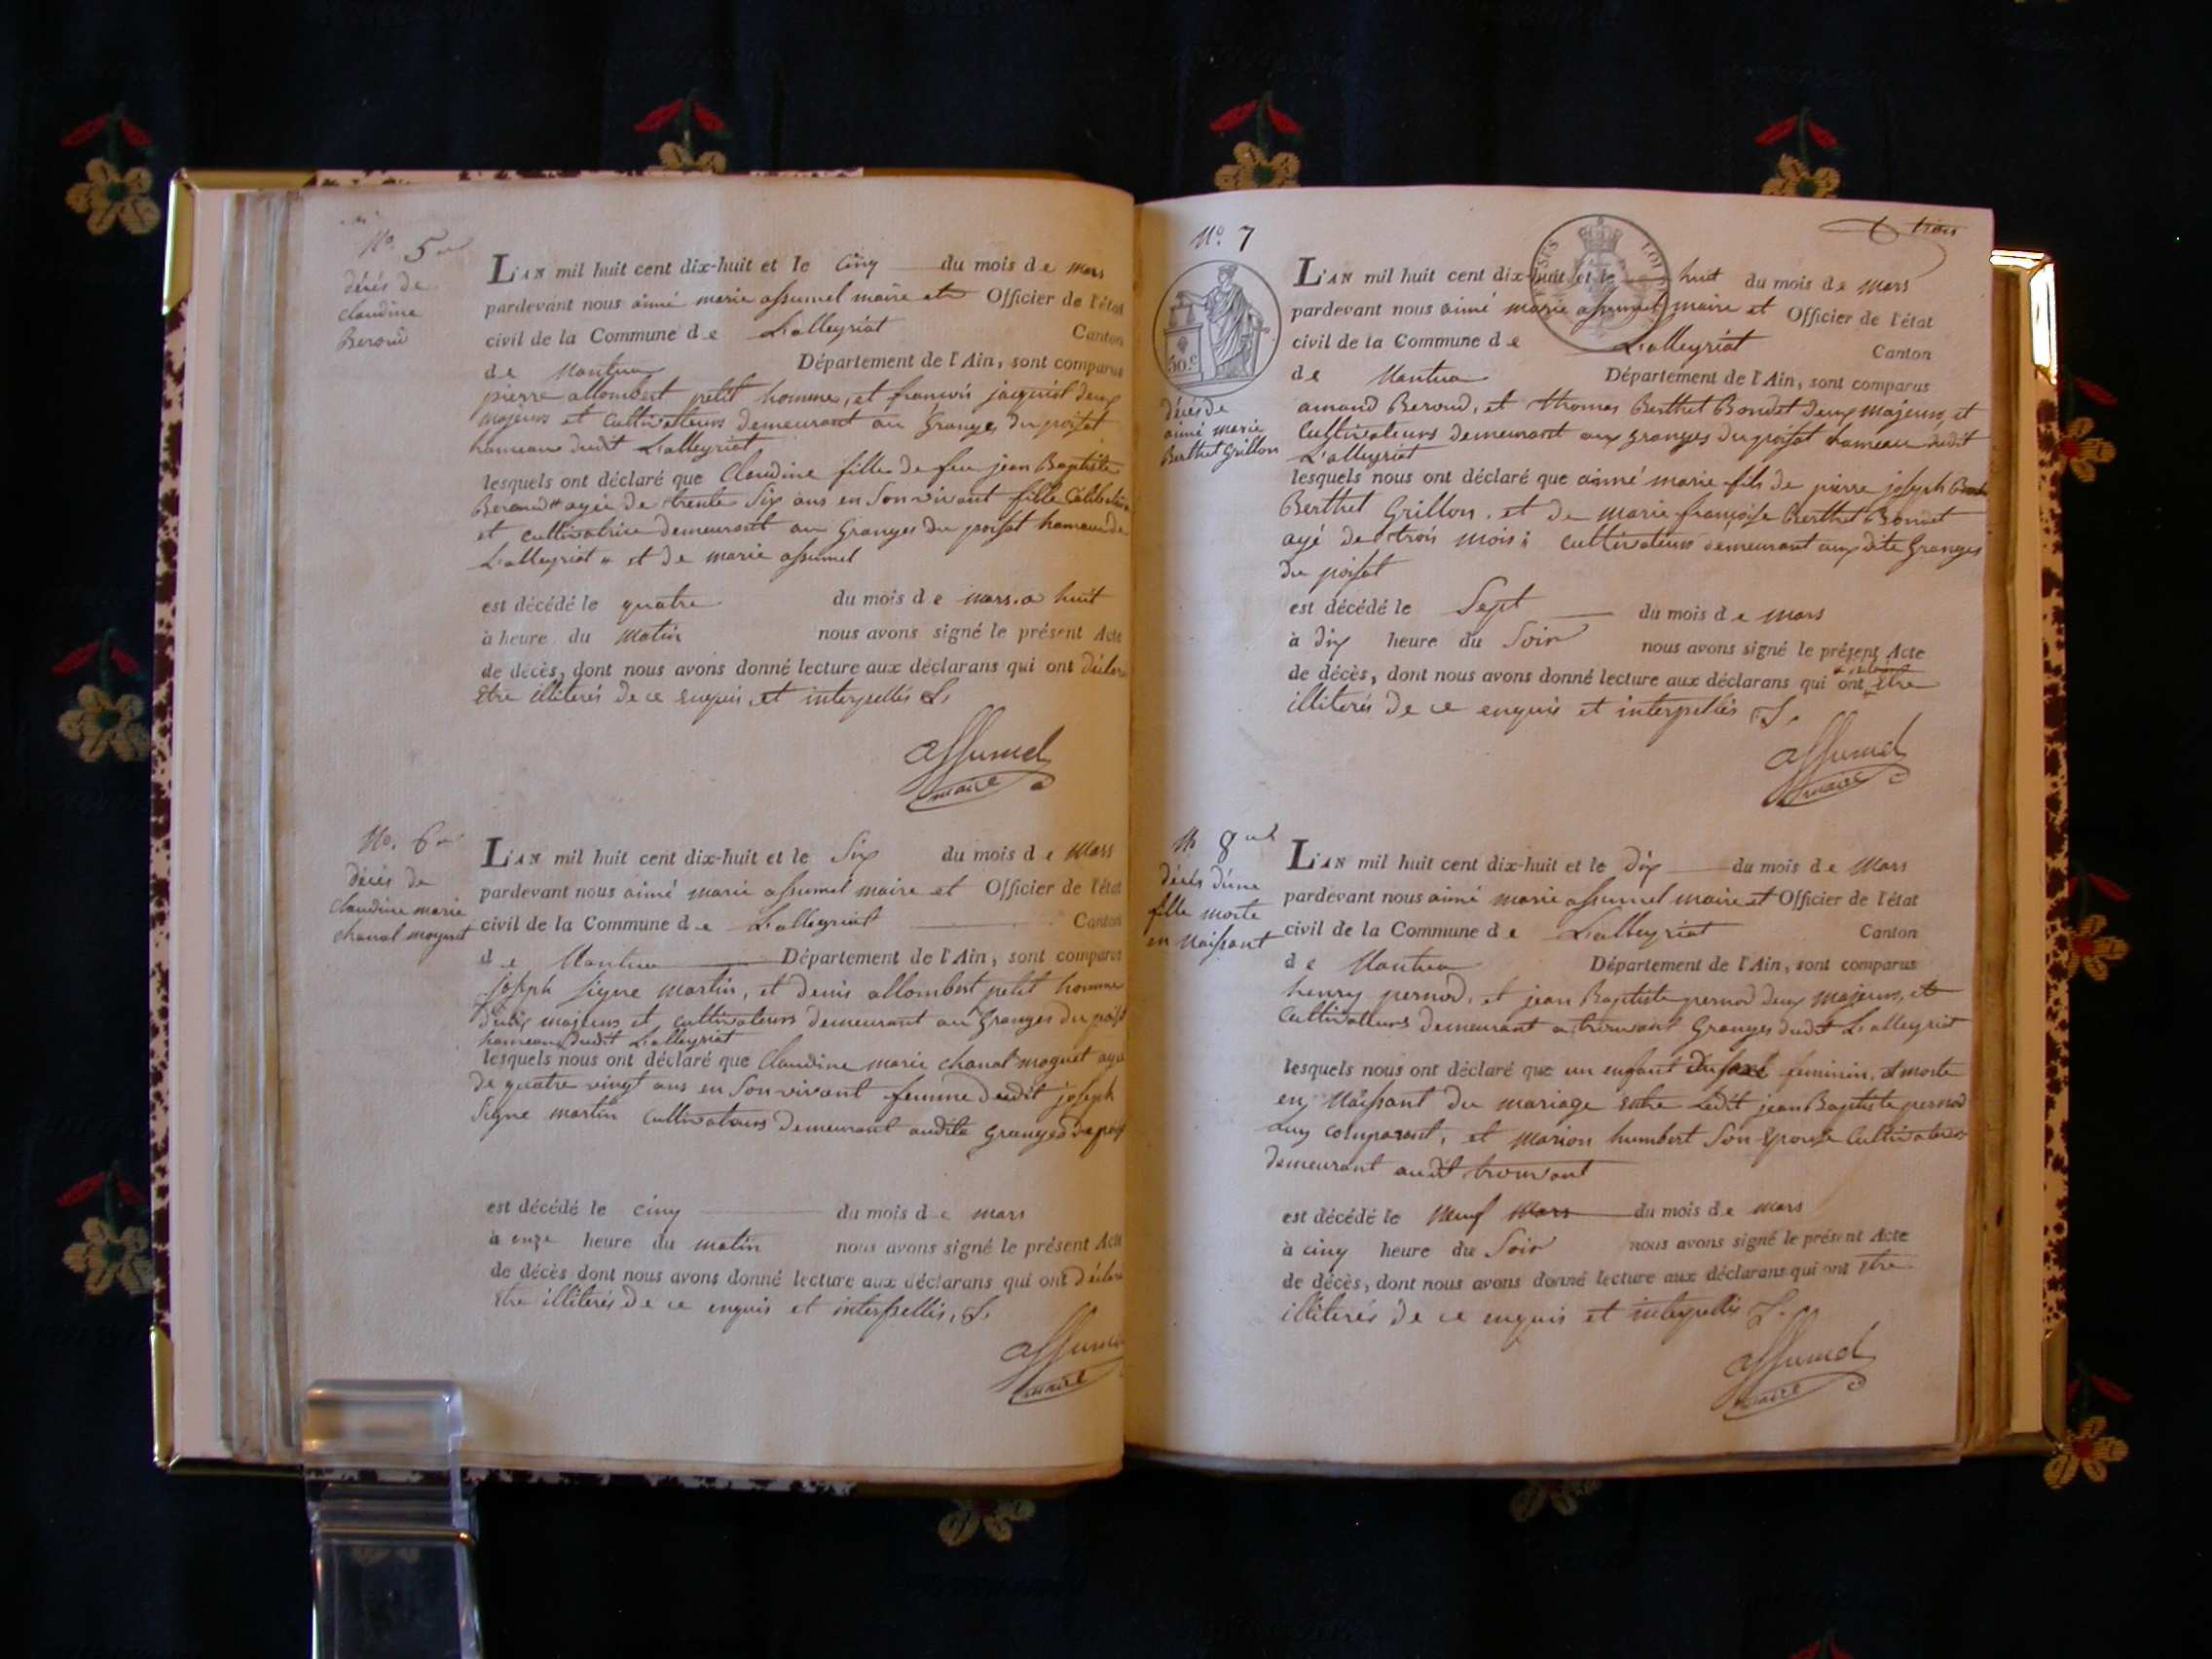 No. 5
décès de
claudine
Beroud
L'AN mil huit cent dix-huit et le cinq du mois de mars
pardevant nous aimé marie assumel maire et Officier de l'état
civil de la Commune de Lalleyriat Canton
de Nantua Département de l'Ain, sont comparus
pierre allombert petit homme, et françois jacquiot deux
majeurs et Cultivateurs demeurant au Granges du poisat
hameau dudit Lalleyriat
lesquels ont déclaré que Claudine fille de feu jean Baptiste
Beroud # agée de trente Six ans en Son vivant fille Célibataire
et cultivatrice demeurant au Granges du poisat hameau de
Lalleyriat # et de marie assumel
est décédé le quatre du mois de mars a huit
à heure du matin nous avons signé le présent Acte
de décès, dont nous avons donné lecture aux déclarans qui ont déclaré
Etre illiterés de ce enquis, et interpellés
assumel
maire
No. 6
décès de
claudine marie
chanal moguet
L'AN mil huit cent dix-huit et le Six du mois de Mars
pardevant nous aimé marie assumel maire et Officier de l'état
civil de la Commune de Lalleyriat Canton
de Nantua Département de l'Ain, sont comparus
joseph Signe martin, et denis allombert petit homme
deux majeurs et cultivateurs demeurant au Granges du poisat
hameau dudit Lalleyriat
lesquels nous ont déclaré que Claudine marie chanal moguet agé
de quatre vingt ans en Son vivant femme dudit joseph
Signe martin Cultivateurs demeurant audite Granges du
est décédé le cinq du mois de mars
à onze heure du matin nous avons signé le présent Acte
de décès dont nous avons donné lecture aux déclarans qui ont déclaré
Etre illiterés de ce enquis et interpellés,
assumel
maire
No. 7
trois
50 c.
décès de
aimé marie
Berthet Grillon
L'AN mil huit cent dix-huit et le huit du mois de Mars
pardevant nous aimé marie assumel maire et Officier de l'état
civil de la Commune de Lalleyriat Canton
de Nantua Département de l'Ain, sont comparus
amand Beroud, et thomas Berthet Bondet deux majeurs, et
Cultivateurs demeurant aux granges du poisat hameau dudit
L'alleyriat
lesquels nous ont déclaré que aimé marie fils de pierre joseph
Berthet Grillon, et de marie françoise Berthet Bondet
agé de trois mois; Cultivateurs demeurant aux dite Granges
du poisat
est décédé le Sept du mois de mars
à dix heure du Soir nous avons signé le présent Acte
de décès, dont nous avons donné lecture aux déclarans qui ont Etre
illiterés de ce enquis et interpellés
assumel
maire
No 8
décès d'une
fille morte
en Naissant
L'AN mil huit cent dix-huit et le dix du mois de Mars
pardevant nous aimé marie assumel maire et Officier de l'état
civil de la Commune de Lalleyriat Canton
de Nantua Département de l'Ain, sont comparus
henry pernod, et jean Baptiste pernod deux majeurs, et
Cultivateurs demeurant a trouvant Granges dudit Lalleyriat
lesquels nous ont déclaré que un enfant du sexe feminin, morte
en Naissant du mariage entre Ledit jean Baptiste pernod
comparant, et marion humbert Son Epouse Cultivateurs
demeurant audit trouvant
est décédé le Neuf Mars du mois de mars
à cinq heure du Soir nous avons signé le présent Acte
de décès, dont nous avons donné lecture aux déclarans qui ont Etre
illiterés de ce enquis et interpellés
assumel
maire